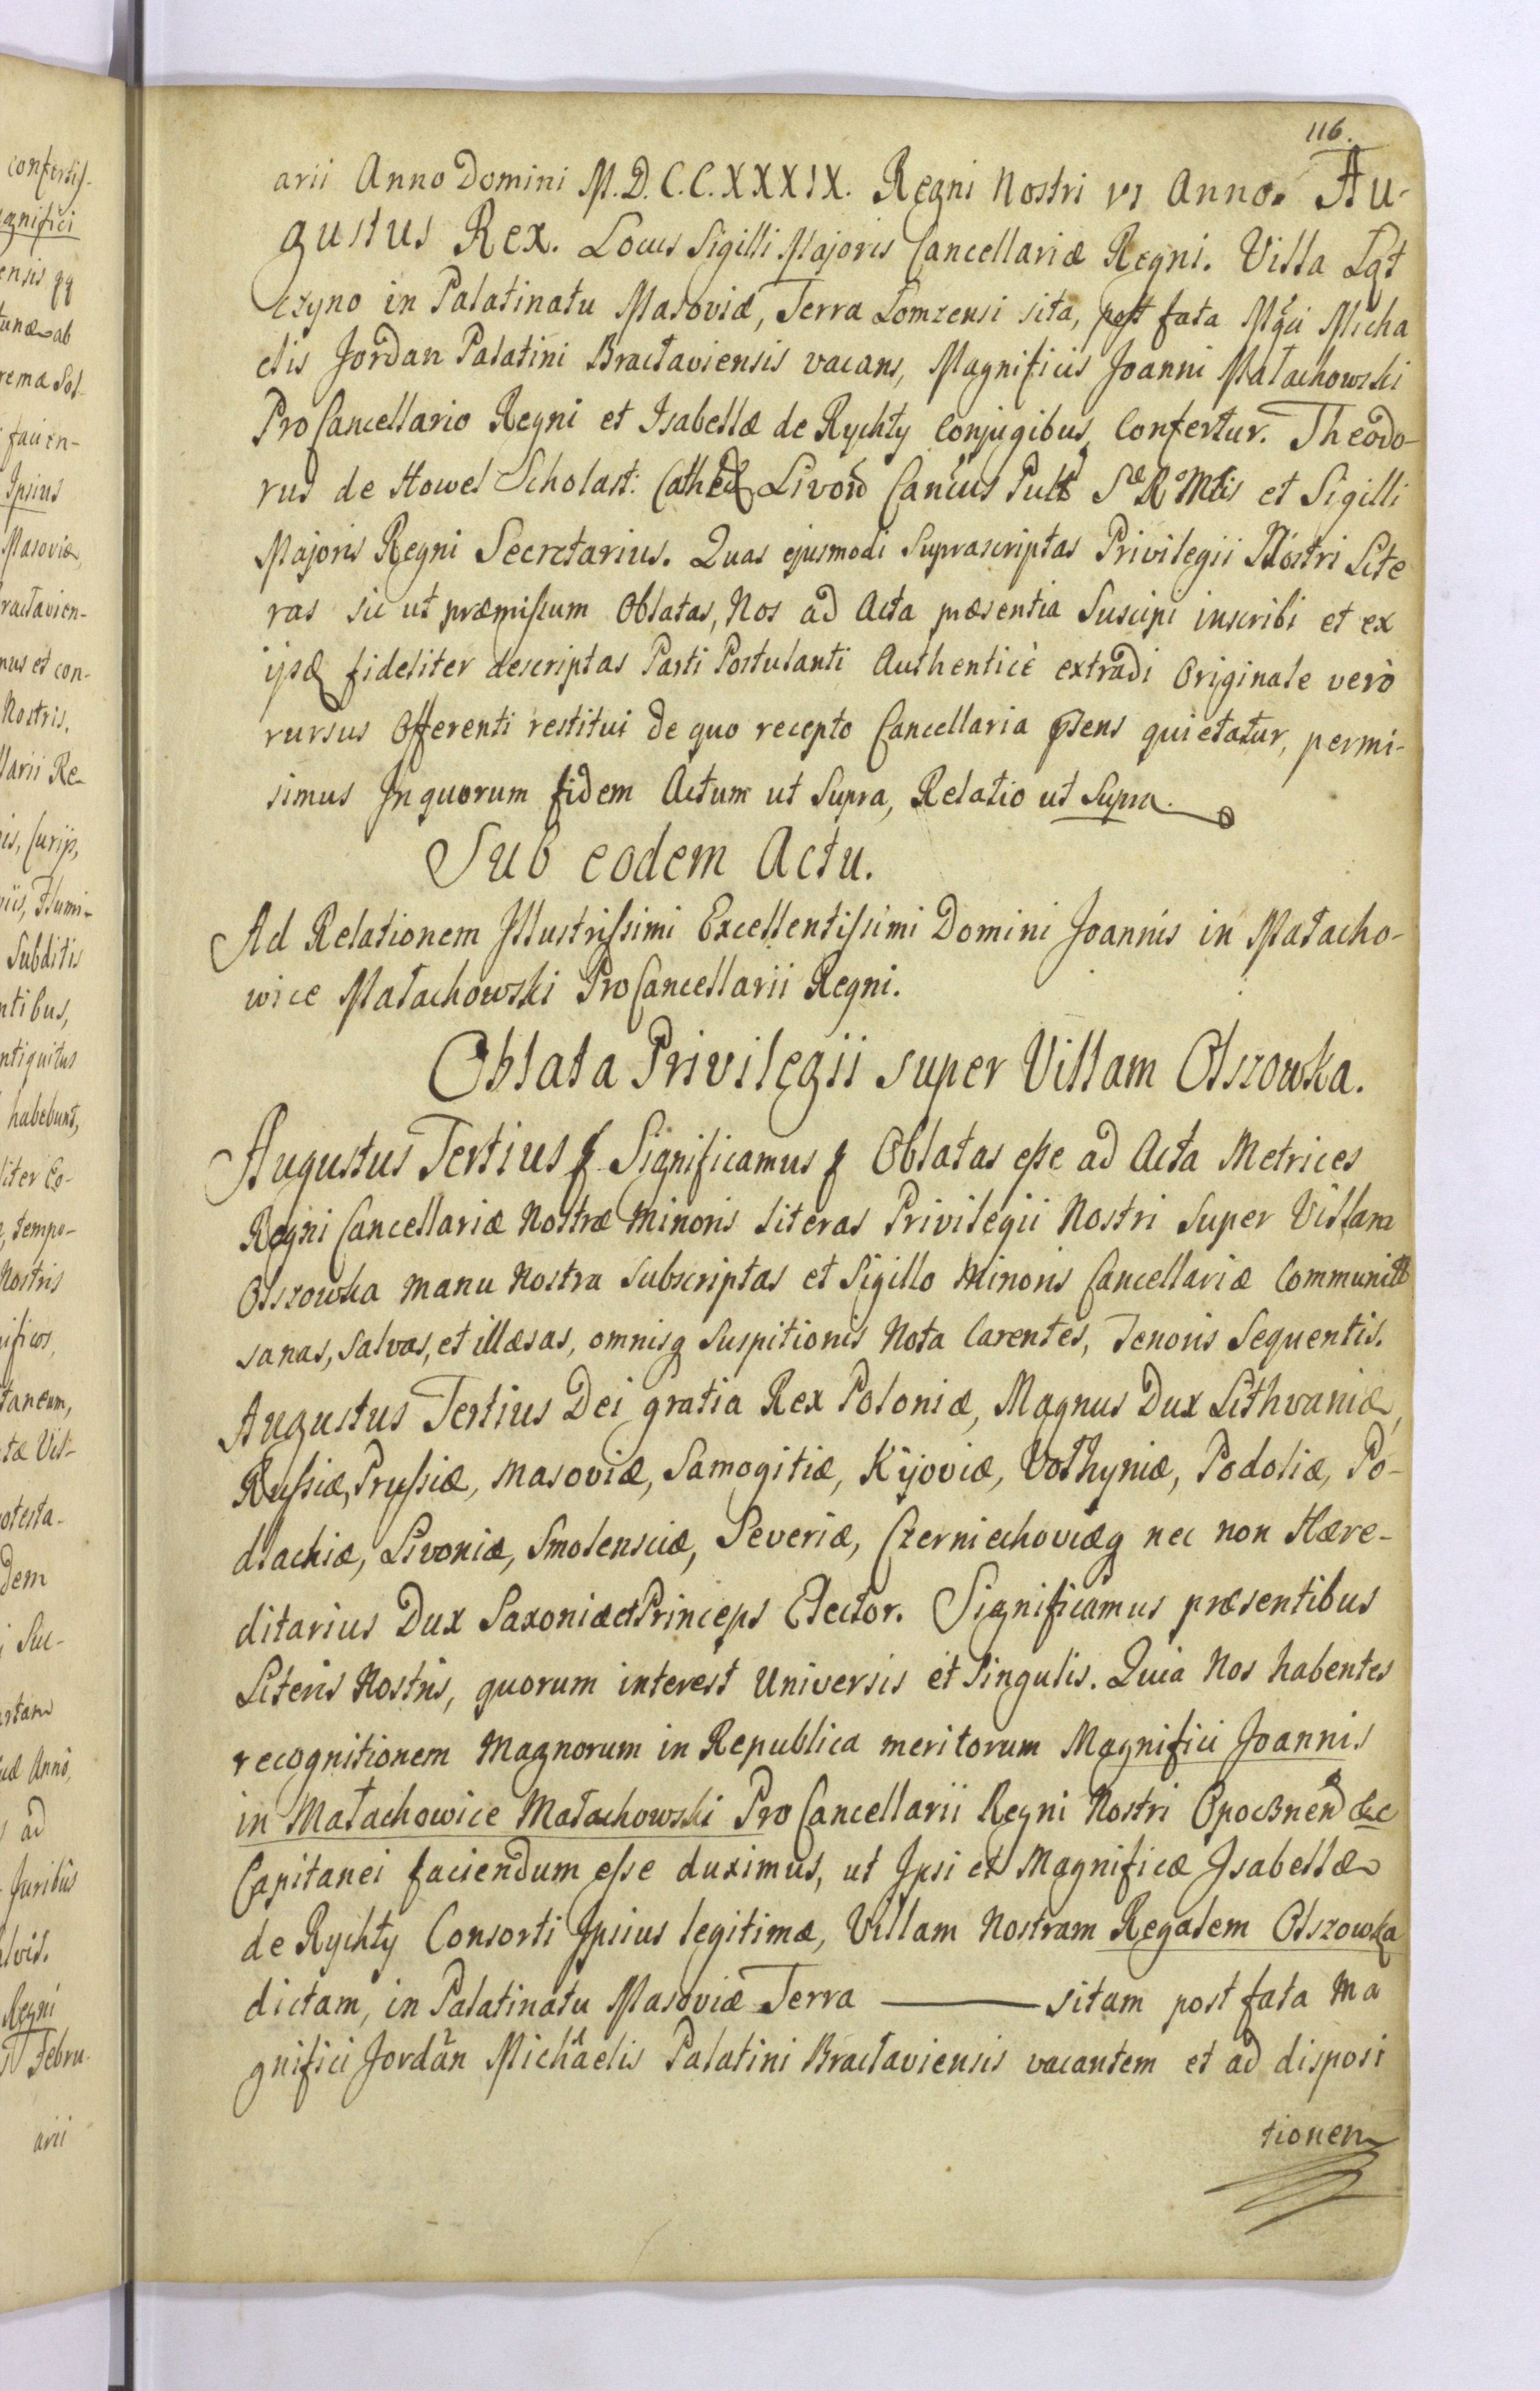 116.
arii Anno Domini M.D.C.C.XXXIX. Regni Nostri VI Anno. Au-
gustus Rex. Locus Sigilli Majoris Cancellariæ Regni. Villa Łąt
czyno in Palatinatu Masoviæ, Terra Łomzensi sita, post fata Mgci Micha
elis Jordan Palatini Bracłaviensis vacans, Magnificis Joanni Małachowski
ProCancellario Regni et Isabellæ de Rychty Conjugibus Confertur. Theodo-
rus de Howel Scholast: Cathed Livon Cancus Pult S R Mtis et Sigilli
Majoris Regni Secretarius. Quas ejusmodi Suprascriptas Privilegii Nostri Lite
ras sic ut præmissum Oblatas, Nos ad Acta præsentia Suscipi inscribi et ex
ijsq fideliter descriptas Parti Postulanti Authenticè extradi Originale verò
rursus Offerenti restitui de quo recepto Cancellaria psens quietatur, permi-
simus In quorum fidem Actum ut Supra, Relatio ut Supra.
Sub eodem Actu.
Ad Relationem Illustrissimi Excellentissimi Domini Joannis in Małacho-
wice Małachowski ProCancellarii Regni.
Oblata Privilegii super Villam Olszowka.
Augustus Tertius Significamus Oblatas esse ad Acta Metrices
Regni Cancellariæ Nostræ Minoris Literas Privilegii Nostri Super Villam
Olszowka manu Nostra Subscriptas et Sigillo Minoris Cancellariæ Communitt
sanas, salvas, et illæsas, omnisq Suspitionis Nota Carentes, Tenoris Sequentis.
Augustus Tertius Dei gratia Rex Poloniæ, Magnus Dux Lithvaniæ,
Russiæ, Prussiæ, Masoviæ, Samogitiæ, Kijoviæ, Vołhyniæ, Podoliæ, Po-
dlachiæ, Livoniæ, Smolensciæ, Severiæ, Czerniechoviæq nec non Hære-
ditarius Dux Saxoniæ et Princeps Elector. Significamus præsentibus
Literis Nostris, quorum interest Universis et Singulis. Quia Nos habentes
recognitionem Magnorum in Republica meritorum Magnifici Joannis
in Małachowice Małachowski ProCancellarii Regni Nostri Opocznen &c
Capitanei faciendum esse duximus, ut Ipsi et Magnificæ Isabellæ
de Rychty Consorti Ipsius legitimæ, Villam Nostram Regalem Olszowka
dictam, in Palatinatu Masoviæ Terra ——— sitam post fata Ma
gnifici Jordan Michaelis Palatini Bracłaviensis vacantem et ad disposi
tionem